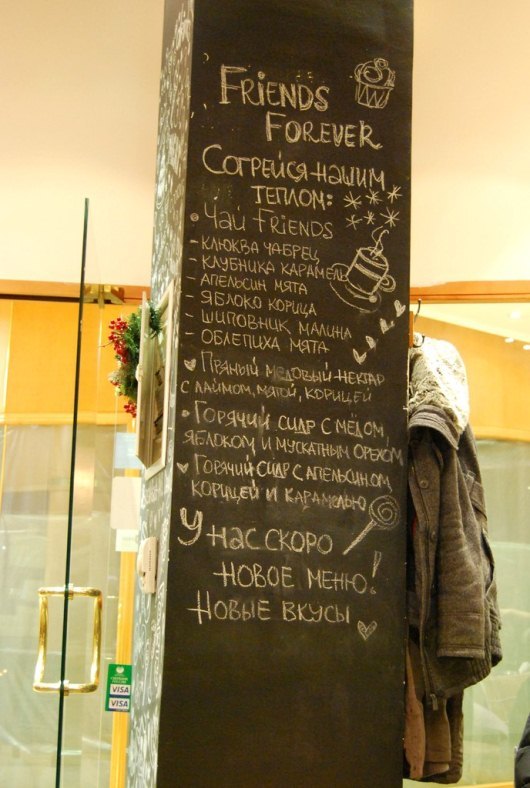 Friends
Forever
Согрейся нашим
теплом:
• Чай Friends
- клюква чабрец
- клубника карамель
- апельсин мята
- яблоко корица
- шиповник малина
- облепиха мята
Пряный медовый нектар
с лаймом, мятой, корицей
• Горячий сидр с мёдом,
яблоком и мускатным орехом
Горячий сидр с апельсином,
корицей и карамелью
У нас скоро
новое меню!
Новые вкусы
VISA
VISA